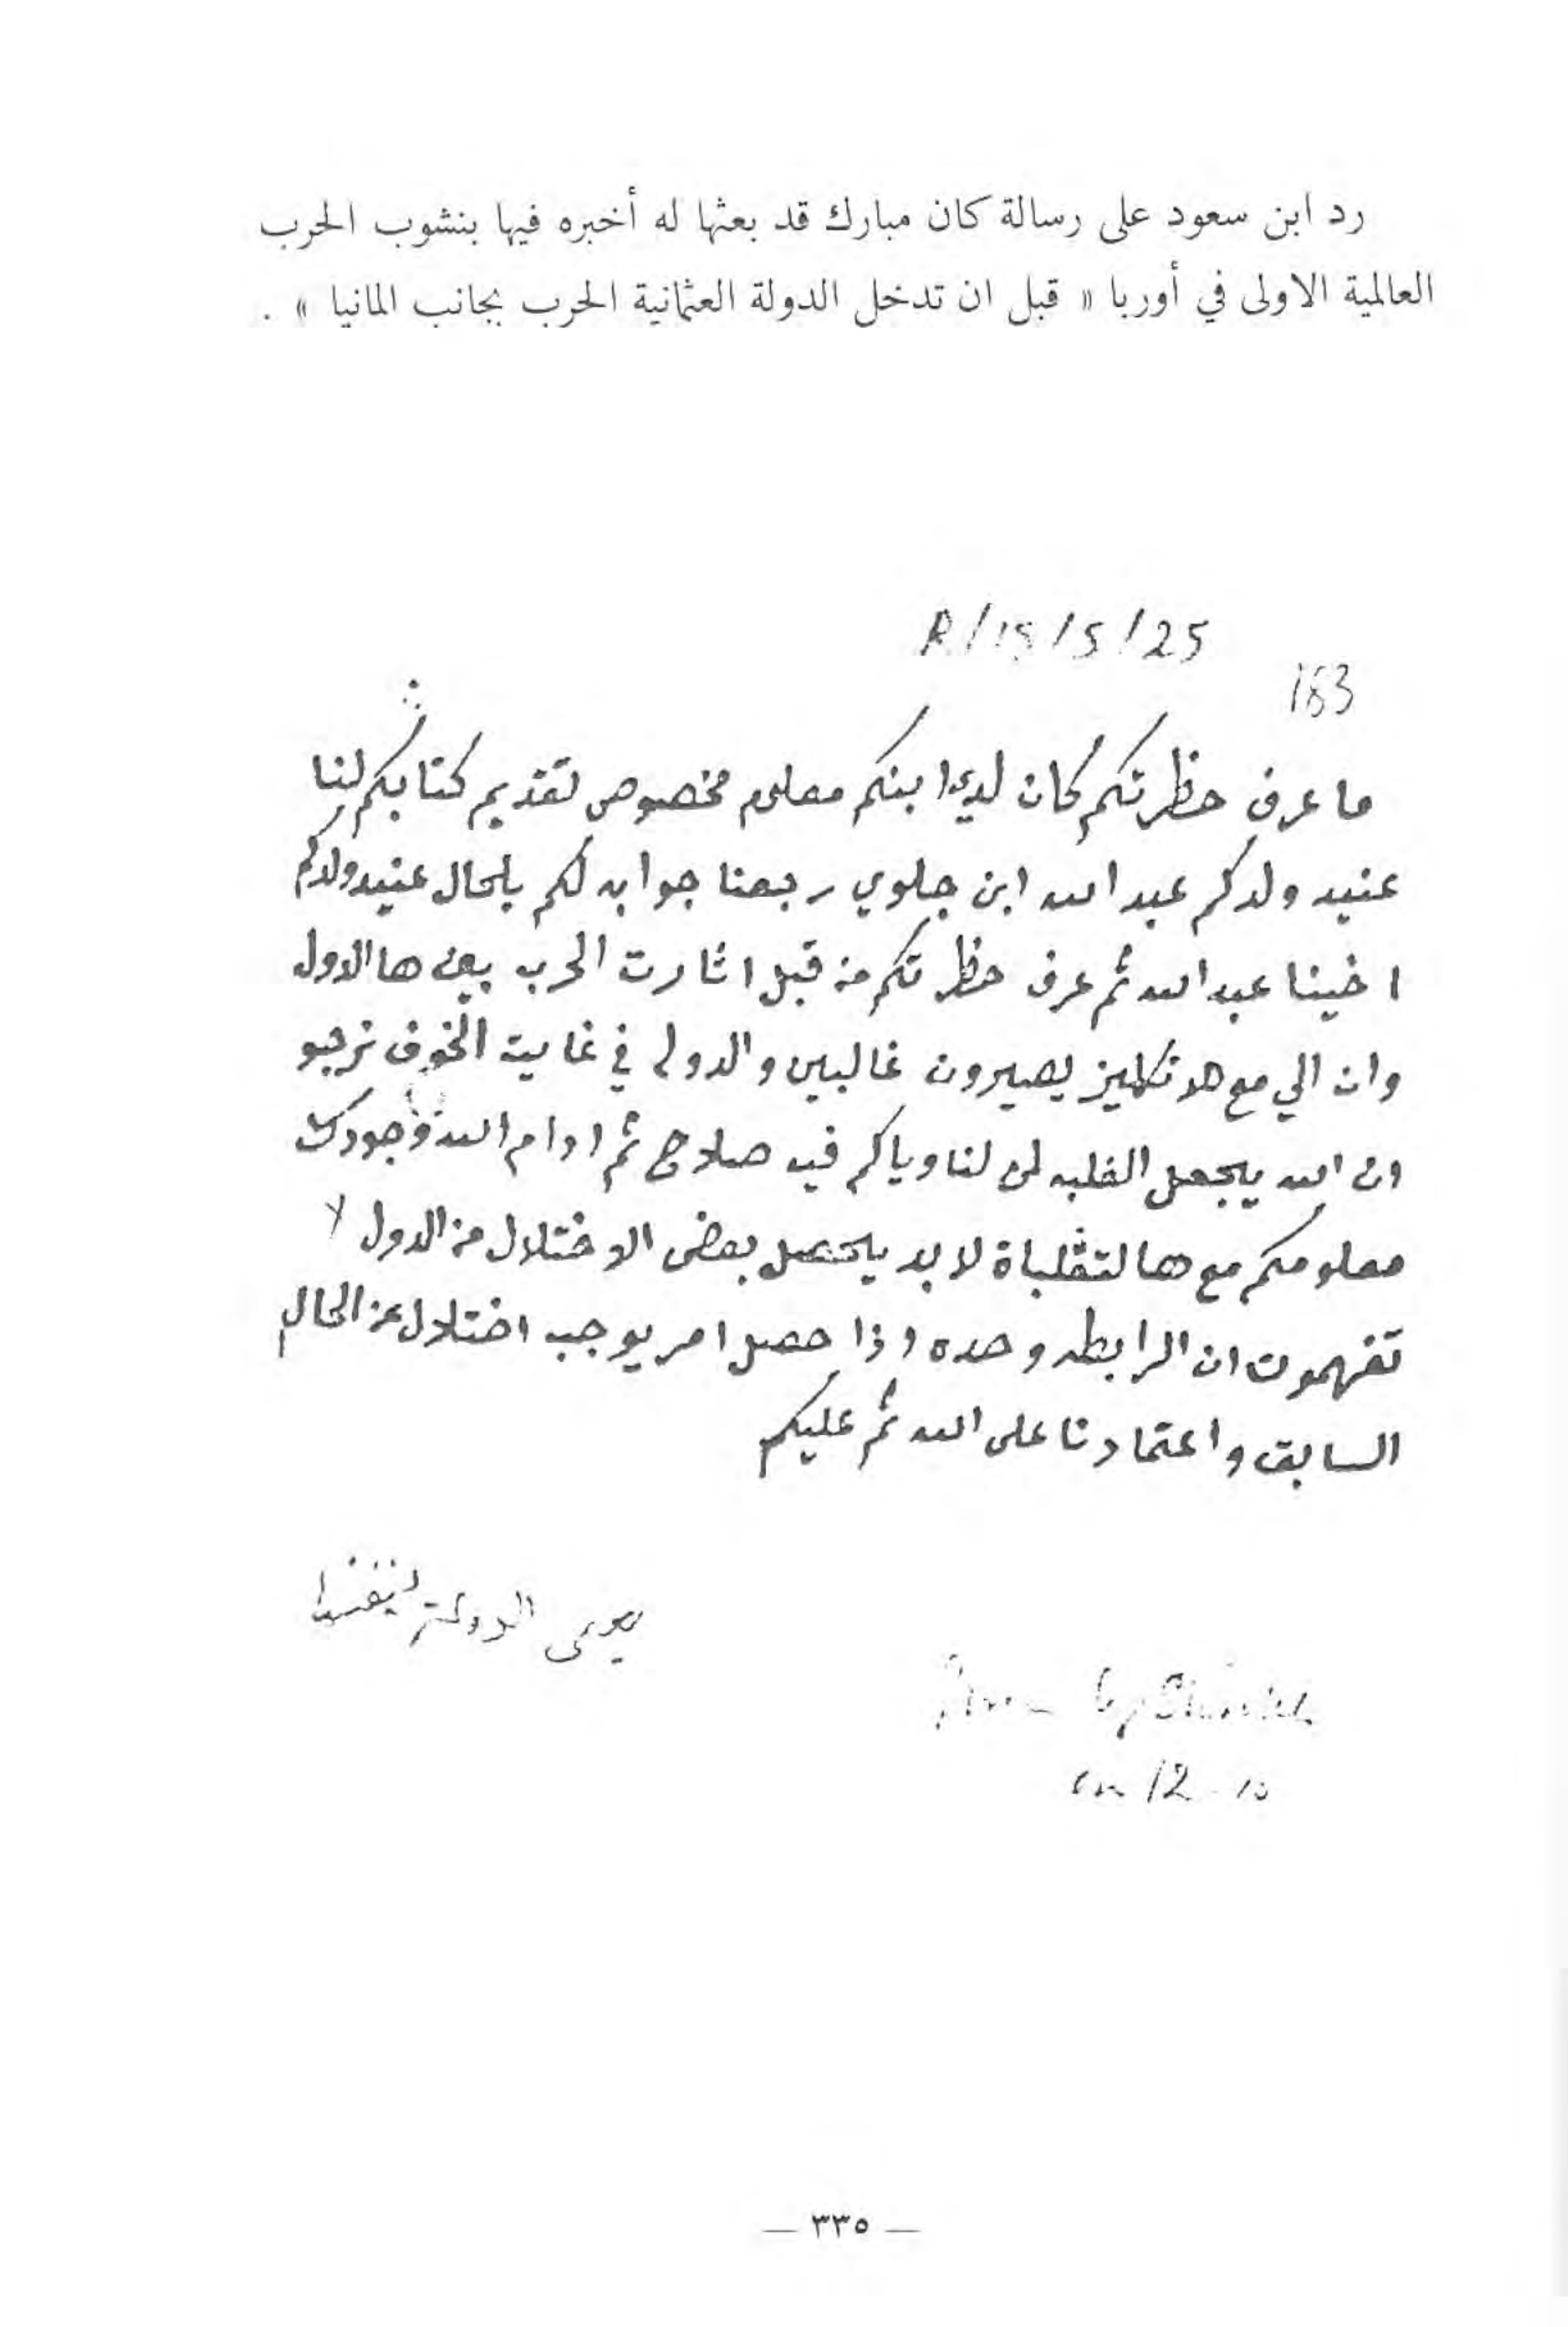 رد ابن سعود على رسالة كان مبارك قد بعثها له أخبره فيها بنشوب الحرب
العالمية الاولى في أوربا « قبل ان تدخل الدولة العثمانية الحرب بجانب المانيا » .
R/15/5/25
183
ما عرف حظرتكم كان لدى ابنكم معلوم مخصوص تقديم كتابكم لنا
عنيد ولدكم عبد الله ابن جلوي رجعنا جوابه لكم بلحال عنيد ولدكم
اخينا عبد الله ثم عرف حظرتكم من قبل اثارت الحرب بين هالدول
وان الي مع هلانكليز يصيرون غالبين والدولي في غايت الخوف نرجو
ان الله يجعل الغلبه لمن لنا وياكم فيه صلاح ثم ادام الله وجودك
معلومكم مع هالتقلباة لابد يحصل بعض الاختلال من الدول لا
تفهمون ان الرابطه وحده اذا حصل امر يوجب اختلال عن الحال
السابق واعتمادنا على الله ثم عليكم
يعني الدولة لنفسها
on 12
— ٣٣٥ —